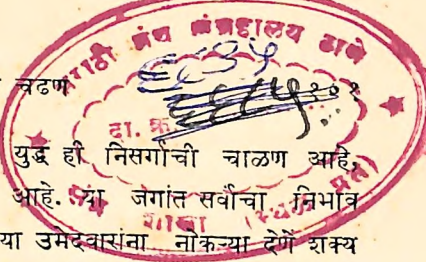 मराठी ग्रंथ संग्रहालय ठाणे
चढण
१०१
दा. क्र.
युद्ध ही निसर्गाची चाळण आहे.
आहे. या जगांत सर्वांचा निभाव
शाखा
या उमेदवारांना नोकऱ्या देणें शक्य